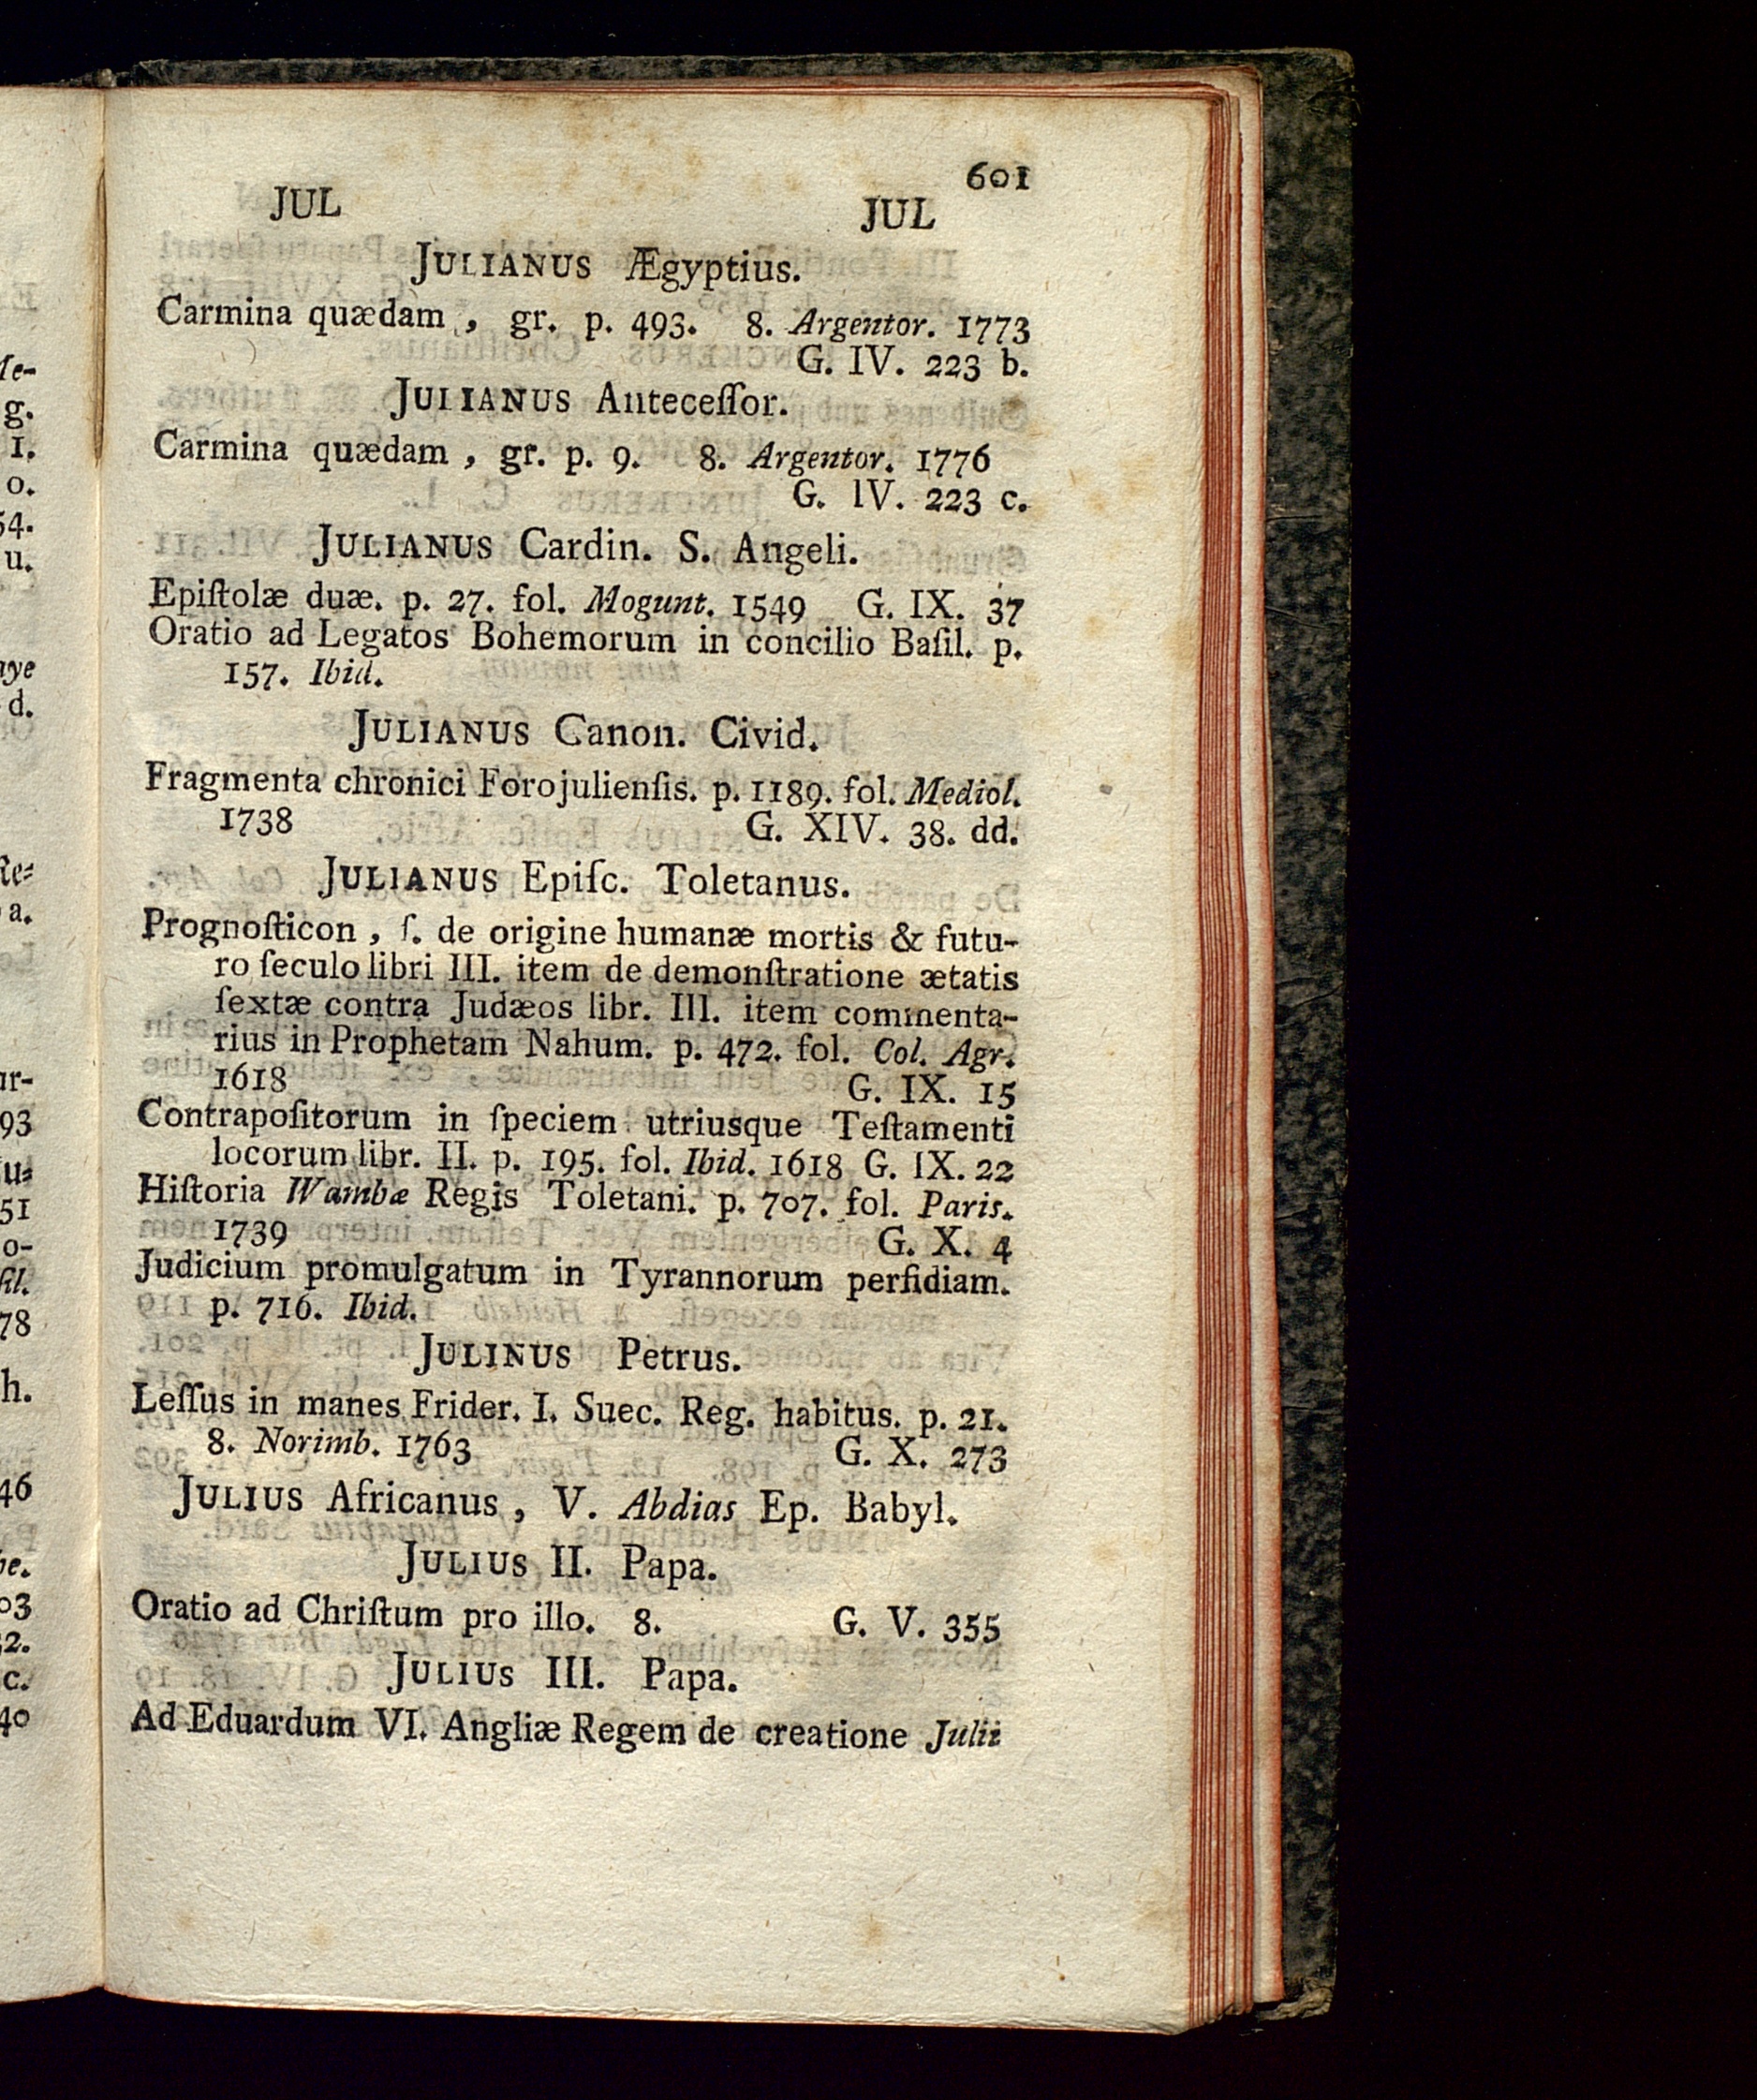 601
JUL JUL
JULIANUS Ægyptius.
Carmina quædam, gr. p. 493. 8. Argentor. 1773
G. IV. 223 b.
JULIANUS Anteceſſor.
Carmina quædam, gr. p. 9. 8. Argentor. 1776
G. IV. 223 c.
JULIANUS Cardin. S. Angeli.
Epiſtolæ duæ. p. 27. fol. Mogunt. 1549 G. IX. 37
Oratio ad Legatos Bohemorum in concilio Baſil. p.
157. Ibid.
JULIANUS Canon. Civid.
Fragmenta chronici Forojulienſis. p. 1189. fol. Mediol.
1738 G. XIV. 38. dd.
JULIANUS Epiſc. Toletanus.
Prognoſticon, ſ. de origine humanæ mortis & futu-
ro ſeculo libri III. item de demonſtratione ætatis
ſextæ contra Judæos libr. III. item commenta-
rius in Prophetam Nahum. p. 472. fol. Col. Agr.
1618 G. IX. 15
Contrapoſitorum in ſpeciem utriusque Teſtamenti
locorum libr. II. p. 195. fol. Ibid. 1618 G. IX. 22
Hiſtoria Wambæ Regis Toletani. p. 707. fol. Paris.
1739 G. X. 4
Judicium promulgatum in Tyrannorum perfidiam.
p. 716. Ibid.
JULINUS Petrus.
Leſſus in manes Frider. I. Suec. Reg. habitus. p. 21.
8. Norimb. 1763 G. X. 273
JULIUS Africanus, V. Abdias Ep. Babyl.
JULIUS II. Papa.
Oratio ad Chriſtum pro illo. 8. G. V. 355
JULIUS III. Papa.
Ad Eduardum VI. Angliæ Regem de creatione Julii